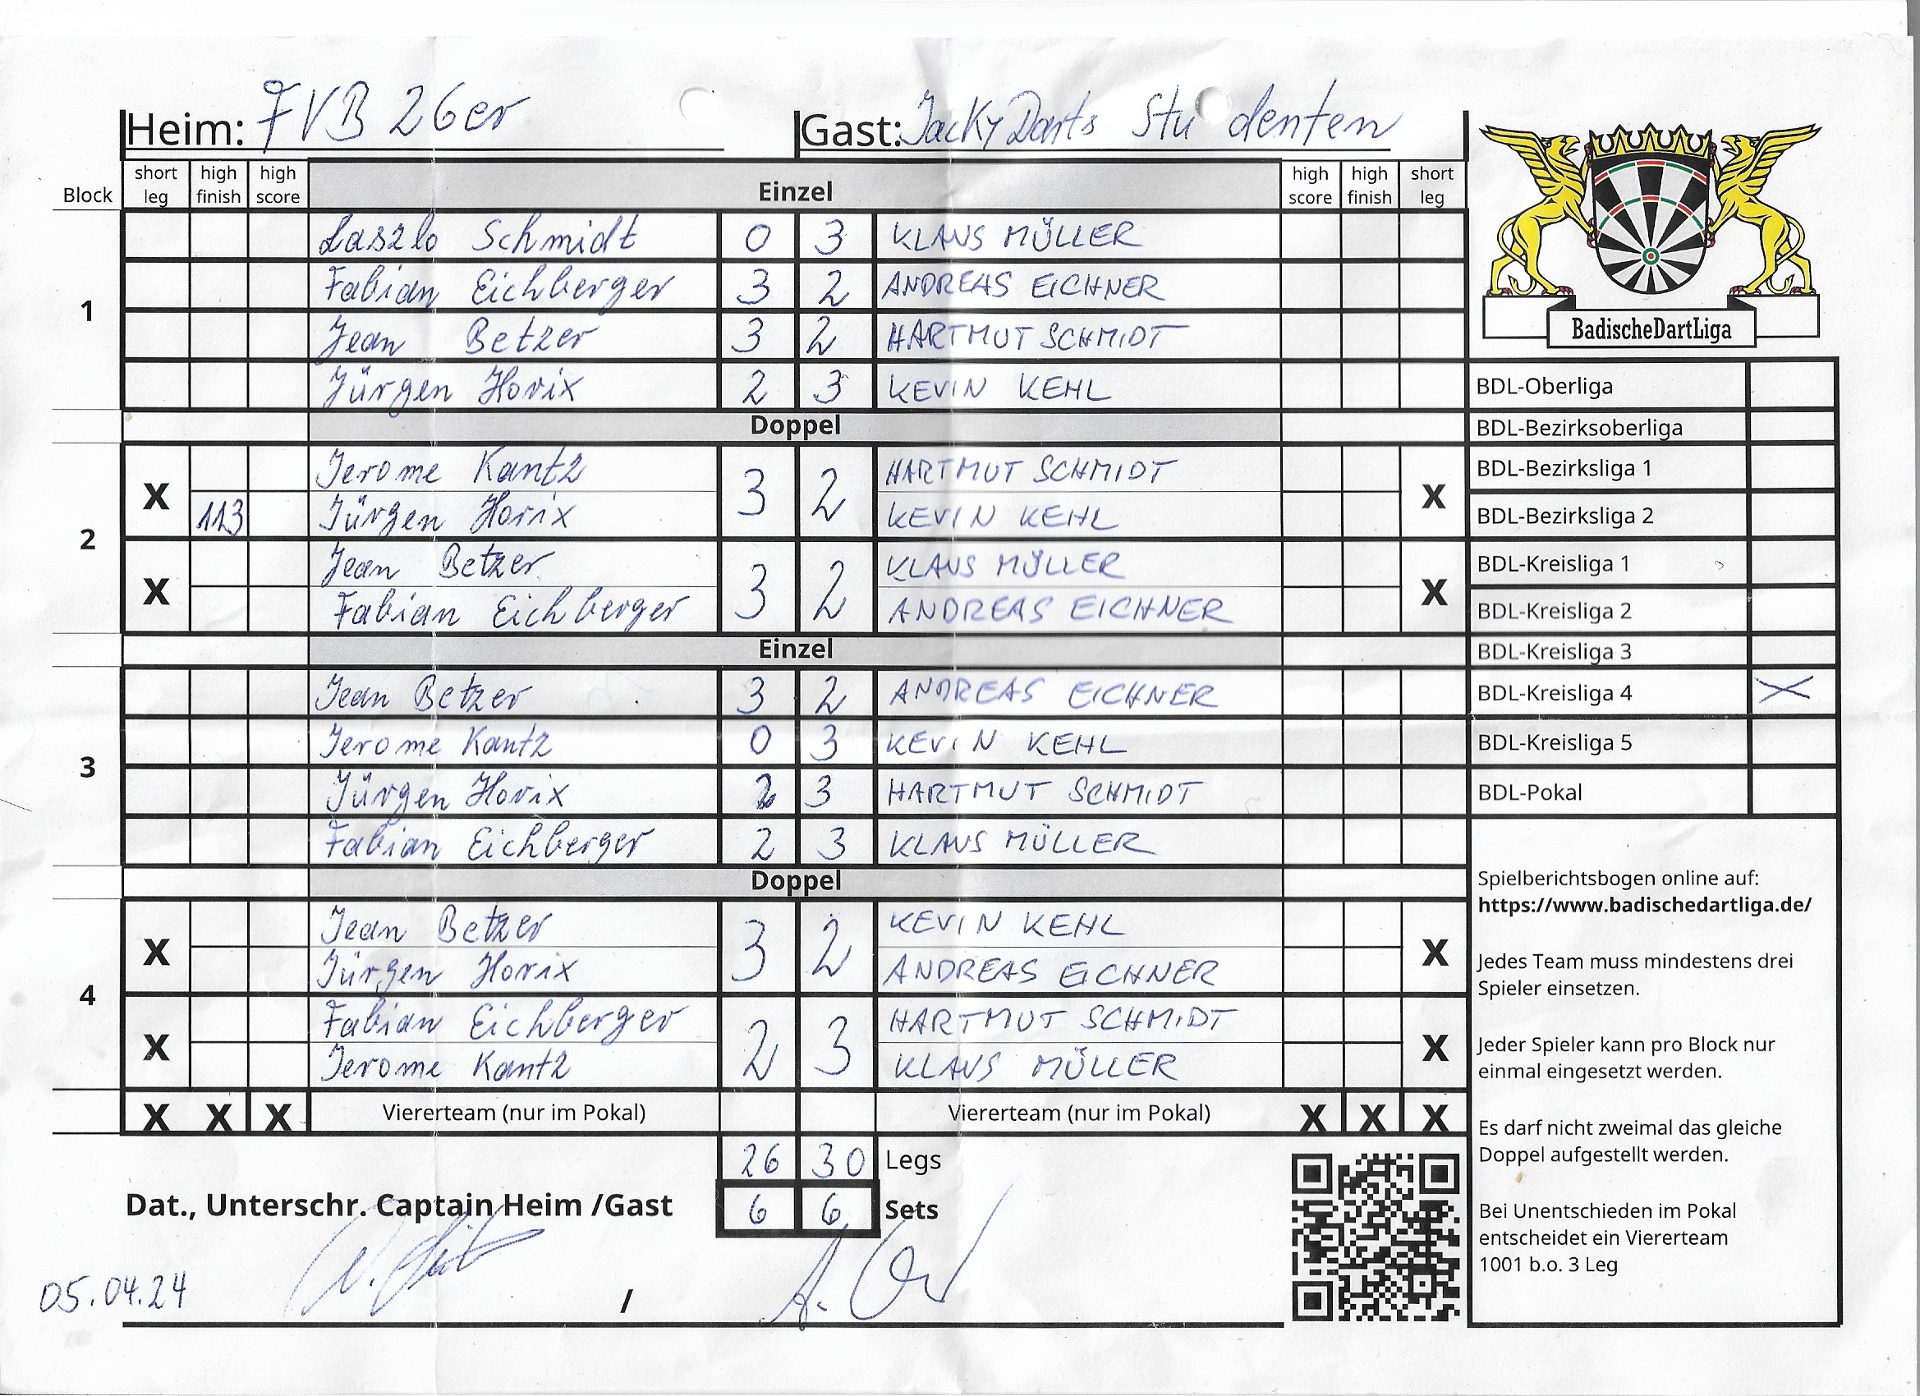 Heim: FVB 26er Gast: JackyDarts Studenten
Block short leg high finish high score Einzel high score high finish short leg
1
Laszlo Schmidt 0 3 KLAUS MÜLLER
Fabian Eichberger 3 2 ANDREAS EICHNER
Jean Betzer 3 2 HARTMUT SCHMIDT
Jürgen Horix 2 3 KEVIN KEHL
Doppel
2
X Jerome Kantz 3 2 HARTMUT SCHMIDT X
113 Jürgen Horix KEVIN KEHL
X Jean Betzer 3 2 KLAUS MÜLLER X
Fabian Eichberger ANDREAS EICHNER
Einzel
3
Jean Betzer 3 2 ANDREAS EICHNER
Jerome Kantz 0 3 KEVIN KEHL
Jürgen Horix 2 3 HARTMUT SCHMIDT
Fabian Eichberger 2 3 KLAUS MÜLLER
Doppel
4
X Jean Betzer 3 2 KEVIN KEHL X
Jürgen Horix ANDREAS EICHNER
X Fabian Eichberger 2 3 HARTMUT SCHMIDT X
Jerome Kantz KLAUS MÜLLER
X X X Viererteam (nur im Pokal) Viererteam (nur im Pokal) X X X
26 30 Legs
Dat., Unterschr. Captain Heim /Gast 6 6 Sets
05.04.24 /
BadischeDartLiga
BDL-Oberliga
BDL-Bezirksoberliga
BDL-Bezirksliga 1
BDL-Bezirksliga 2
BDL-Kreisliga 1
BDL-Kreisliga 2
BDL-Kreisliga 3
BDL-Kreisliga 4 X
BDL-Kreisliga 5
BDL-Pokal
Spielberichtsbogen online auf:
https://www.badischedartliga.de/
Jedes Team muss mindestens drei
Spieler einsetzen.
Jeder Spieler kann pro Block nur
einmal eingesetzt werden.
Es darf nicht zweimal das gleiche
Doppel aufgestellt werden.
Bei Unentschieden im Pokal
entscheidet ein Viererteam
1001 b.o. 3 Leg